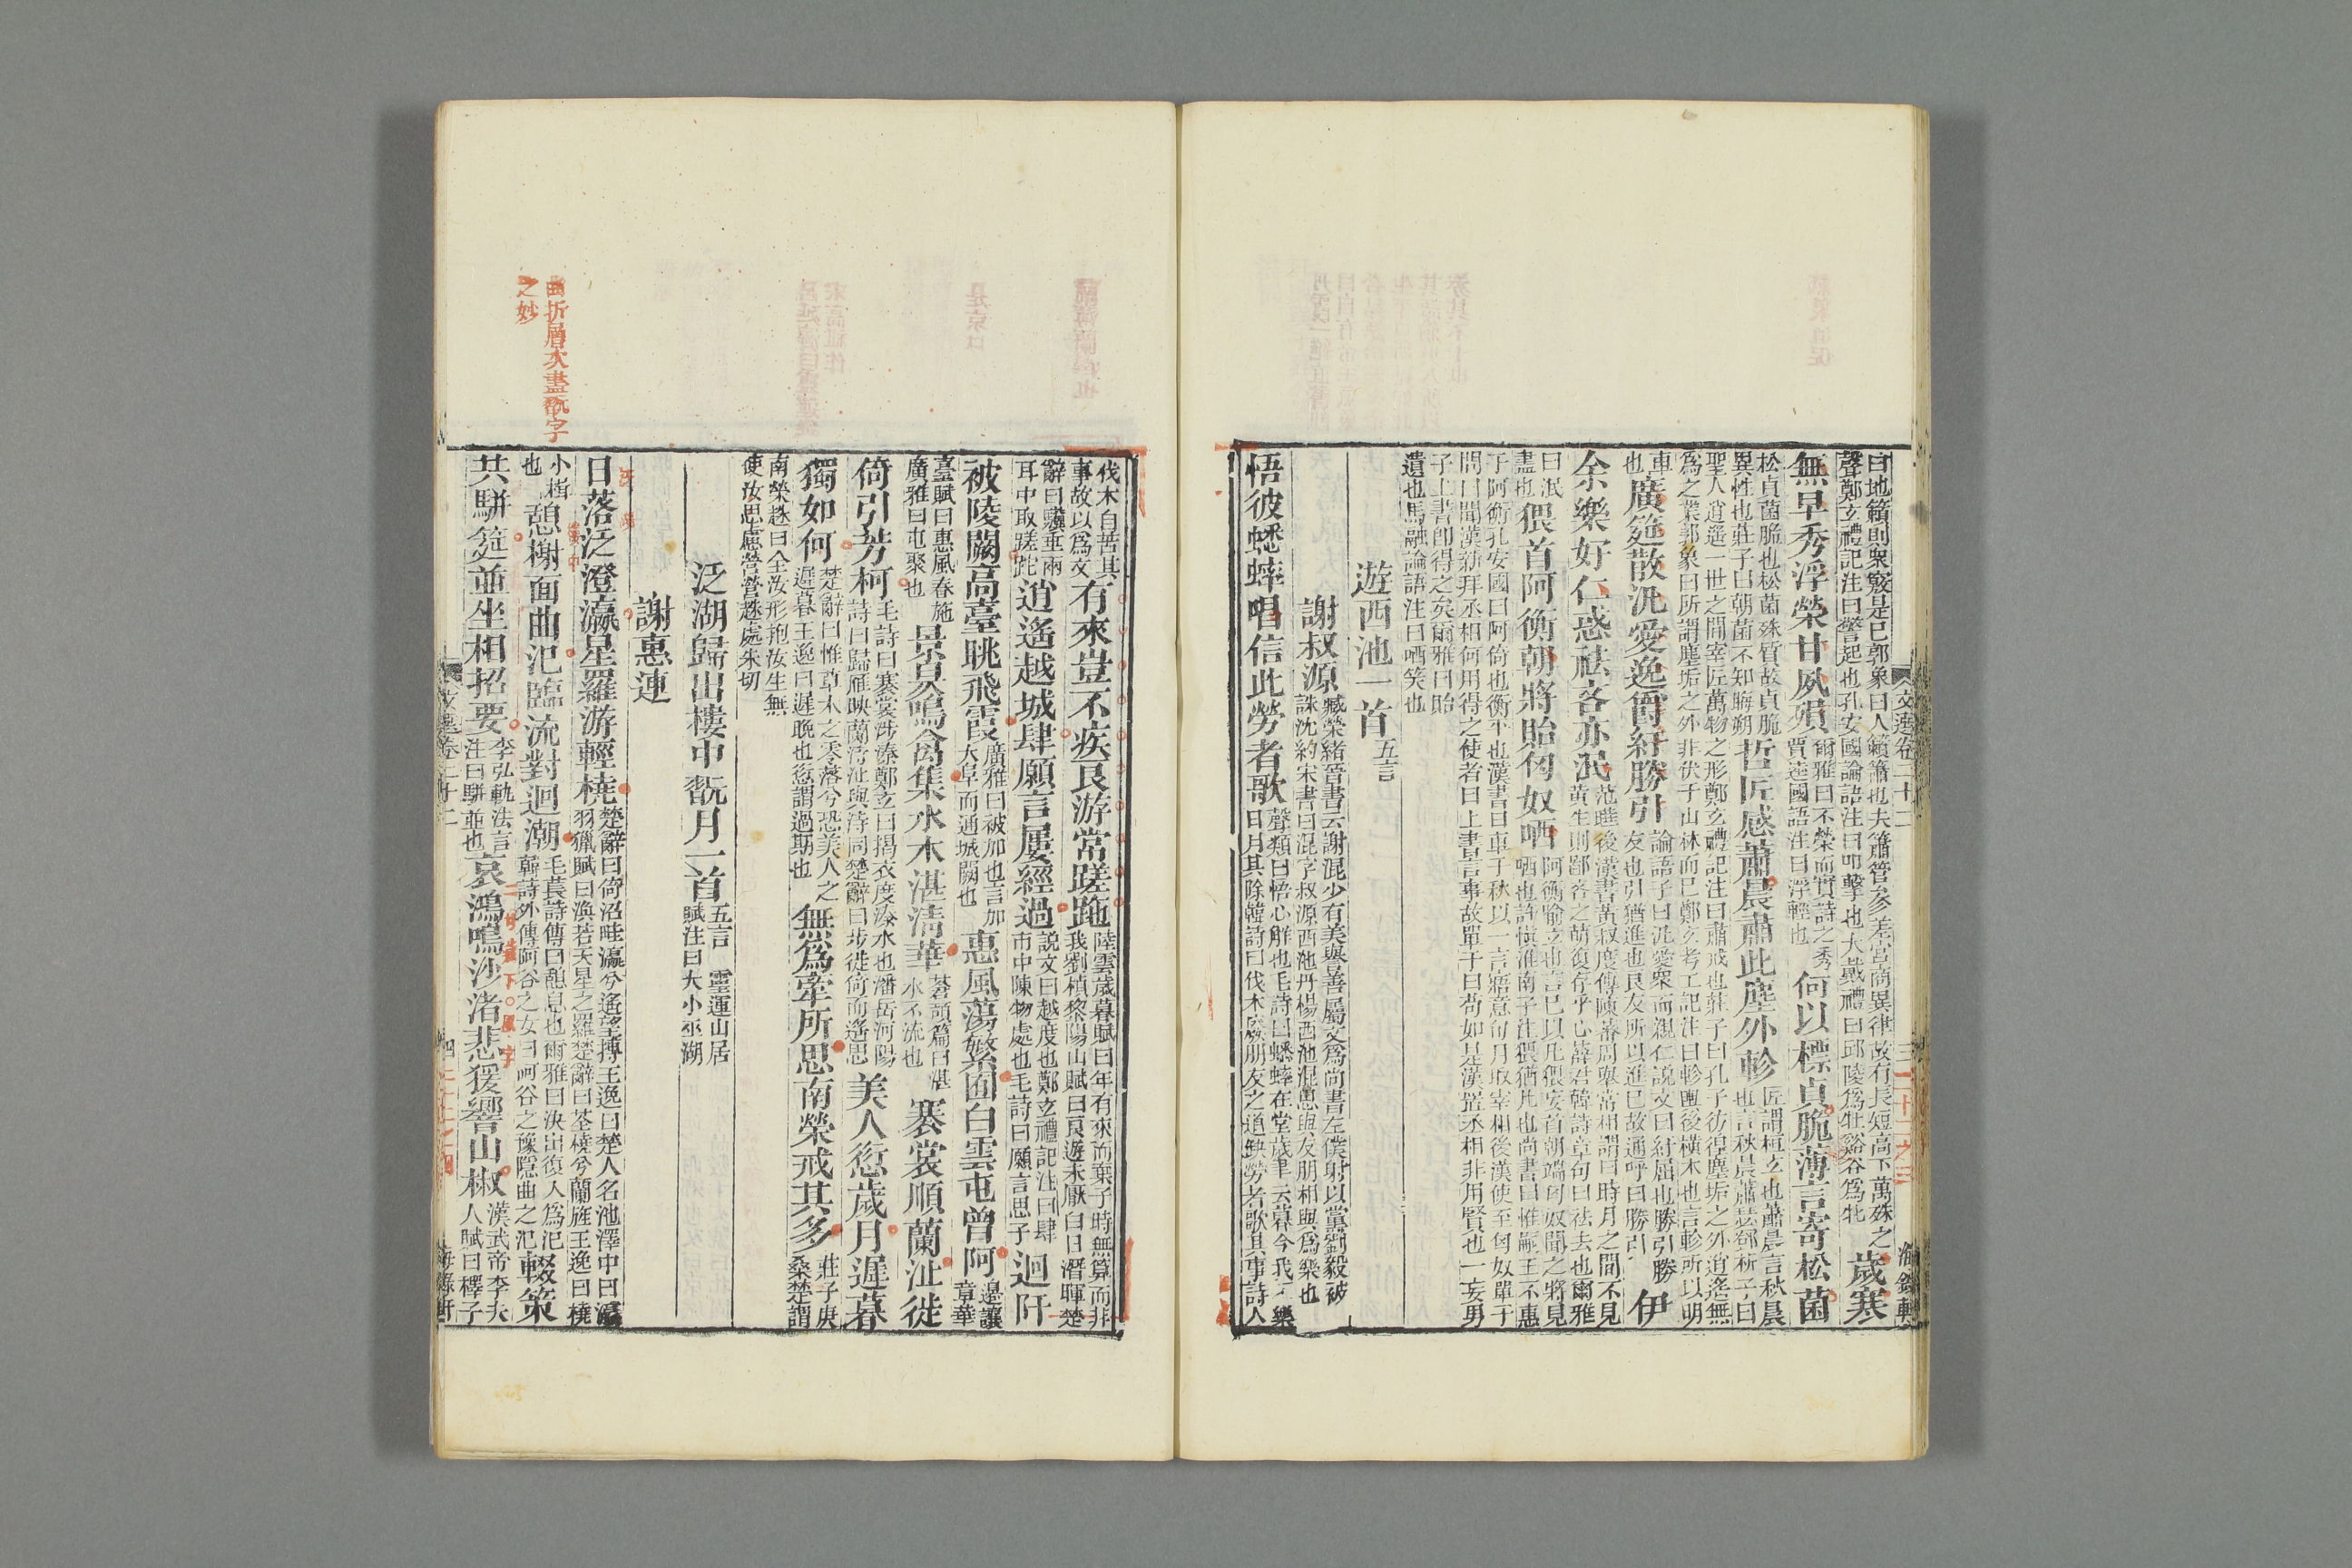 文選卷二十二　三　二十二之三　海錄軒
曰地籟則衆竅是已郭象曰人籟簫也夫簫管參差宮商異律故有長短高下萬殊之聲鄭玄禮記注曰警起也孔安國論語注曰叩擊也大戴禮曰邱陵爲牡谿谷爲牝歲寒
無早秀浮榮甘夙殞爾雅曰不榮而實謂之秀賈逵國語注曰浮輕也何以標貞脆薄言寄松菌
松貞菌脆也松菌殊質故貞脆異性也莊子曰朝菌不知晦朔哲匠感蕭晨肅此塵外軫匠謂桓玄也蕭晨言秋晨也言秋晨蕭瑟鄧析子曰
聖人逍遙一世之間宰匠萬物之形鄭玄禮記注曰肅戒也莊子曰孔子彷徨塵垢之外逍遙無爲之業郭象曰所謂塵垢之外非伏于山林而已鄭玄考工記注曰軫輿後橫木也言軫所以明
車也廣筵散汎愛逸爵紆勝引論語子曰汎愛衆而親仁說文曰紆屈也勝引勝友也引猶進也良友所以進己故通呼曰勝引伊
余樂好仁惑祛吝亦泯范曄後漢書黃叔度傳陳蕃周舉常相謂曰時月之間不見黃生則鄙吝之萌復存乎心薛君韓詩章句曰祛去也爾雅
曰泯盡也猥首阿衡朝將貽匈奴哂阿衡喻立也言己以凡猥妄首朝端匈奴聞之將見哂也許慎淮南子注猥猶凡也尚書曰惟嗣王不惠
于阿衡孔安國曰阿倚也衡平也漢書曰車千秋以一言寤意旬月取宰相後漢使至匈奴單于問曰聞漢新拜丞相何用得之使者曰上書言事故單于曰苟如是漢置丞相非用賢也一妄男
子上書卽得之矣爾雅曰貽遺也馬融論語注曰哂笑也
遊西池一首五言
謝叔源臧榮緒晉書云謝混少有美譽善屬文爲尚書左僕射以黨劉毅被誅沈約宋書曰混字叔源西池丹楊西池混思與友朋相與爲樂也
悟彼蟋蟀唱信此勞者歌聲類曰悟心解也毛詩曰蟋蟀在堂歲聿云暮今我不樂日月其除韓詩曰伐木廢朋友之道缺勞者歌其事詩人
伐木自苦其事故以爲文有來豈不疾良游常蹉跎陸雲歲暮賦曰年有來而棄予時無算而非我劉楨黎陽山賦曰良遊未厭白日潛暉楚
辭曰驥垂兩耳中坂蹉跎逍遙越城肆願言屢經過說文曰越度也鄭玄禮記注曰肆市中陳物處也毛詩曰願言思子迴阡
被陵闕高臺眺飛霞廣雅曰被加也言加大阜而通城闕也惠風蕩繁囿白雲屯曾阿邊讓章華
臺賦曰惠風春施廣雅曰屯聚也景昃鳴禽集水木湛清華蒼頡篇曰湛水不流也褰裳順蘭沚徙
倚引芳柯毛詩曰褰裳涉溱鄭玄曰揭衣度溱水也潘岳河陽詩曰歸雁映蘭渚沚與渚同楚辭曰步徙倚而遙思美人愆歲月遲暮
獨如何楚辭曰惟草木之零落兮恐美人之遲暮王逸曰遲晚也愆謂過期也無爲牽所思南榮戒其多莊子庚桑楚謂
南榮趎曰全汝形抱汝生無使汝思慮營營趎處朱切
泛湖歸出樓中翫月一首五言　靈運山居賦注曰大小巫湖
謝惠連
日落泛澄瀛星羅游輕橈楚辭曰倚沼畦瀛兮遙望博王逸曰楚人名池澤中曰瀛羽獵賦曰渙若天星之羅楚辭曰荃橈兮蘭旌王逸曰橈
小楫也憩榭面曲汜臨流對迴潮毛萇詩傳曰憩息也爾雅曰決出復入爲汜韓詩外傳阿谷之女曰阿谷之豫隱曲之汜輟策
共駢筵並坐相招要李弘軌法言注曰駢並也哀鴻鳴沙渚悲猨響山椒漢武帝李夫人賦曰釋予
曲折層次盡翫字
之妙
文選卷二十二　四　二十二之四　海錄軒